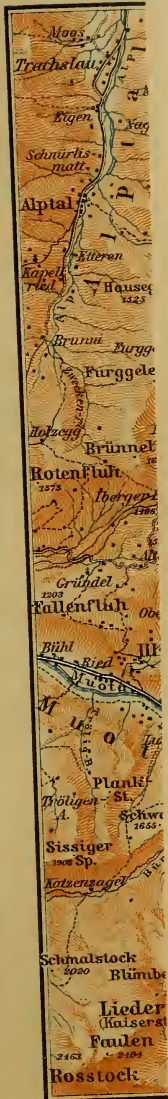 Moos
Trachslau
Alp
Eigen
Nag
Schnürlis
matt
Alptal
Alpta
Eüeren
Kapell
ried
Hauseg
1525
Brunni
Furgge
Furggele
Zwecken
Holzegg
Brünnel
Rotenfluh
1573
Iberger
1406
Gründel
1203
Fallenfluh
Obe
Bühl
Ried
Ill
Muota
Muot
Plank
St.
Tröligen
A.
Schwa
1655
Sissiger
1908 Sp.
Katzenzagel
Schmalstock
2020
Blümbe
Lieder
(Kaiserst
Faulen
2463
2494
Rosstock